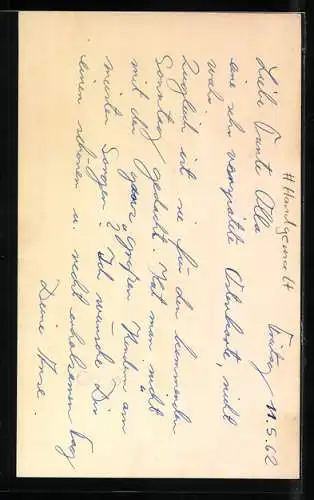 Freitag 11.5.62
# Handgemalt
Liebe Tante Alla
eine sehr verspätete Osterkarte, nicht
wahr
Zugleich ist sie für den kommenden
Sonntag gedacht. Hat man nicht
mit den "ganz großen" Kindern am
meisten Sorgen? Ich wünsche Dir
einen schönen u. recht erholsamen Tag
Deine